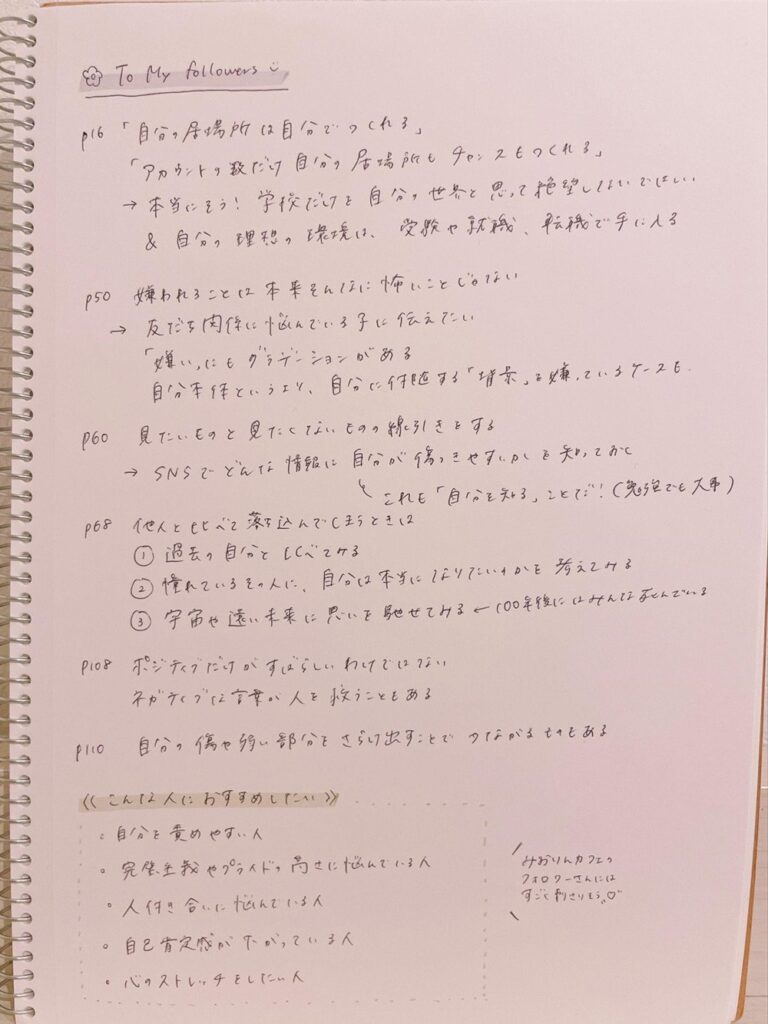 To My followers
p16 「自分の居場所は自分でつくれる」
「アカウントの数だけ自分の居場所もチャンスもつくれる」
→ 本当にそう! 学校だけを自分の世界と思って絶望しないでほしい
& 自分の理想の環境は、受験や就職、転職で手に入る
p50 嫌われることは本来そんなに怖いことじゃない
→ 友だち関係に悩んでいる子に伝えたい
「嫌い」にもグラデーションがある
自分本体というより、自分に付随する「背景」を嫌っているケースも
p60 見たいものと見たくないものの線引きをする
→ SNSでどんな情報に自分が傷つきやすいかを知っておく
これも「自分を知る」ことだ!(勉強でも大事)
p68 他人と比べて落ち込んでしまうときは
① 過去の自分と比べてみる
② 憧れているその人に、自分は本当になりたいのかを考えてみる
③ 宇宙や遠い未来に思いを馳せてみる ← 100年後にはみんな死んでいる
p108 ポジティブだけがすばらしいわけではない
ネガティブな言葉が人を救うこともある
p110 自分の傷や弱い部分をさらけ出すことでつながるものもある
《こんな人におすすめしたい》
・自分を責めやすい人
・完璧主義やプライドの高さに悩んでいる人
・人付き合いに悩んでいる人
・自己肯定感が下がっている人
・心のストレッチをしたい人
みおりんカフェの
フォロワーさんには
すごく刺さりそう♡